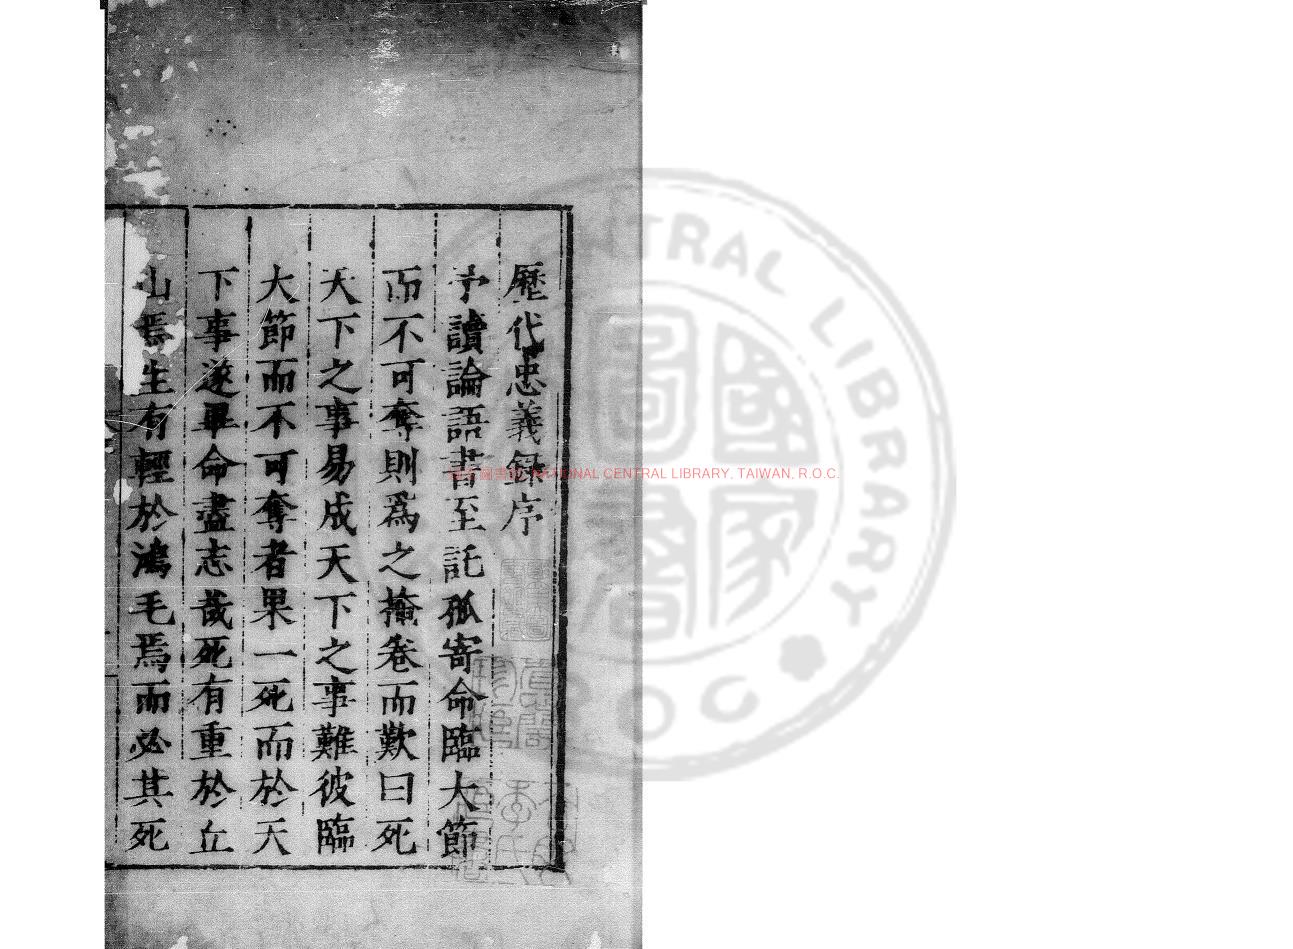 歷代忠義錄序
予讀論語書至託孤寄命臨大節
而不可奪則爲之掩卷而歎曰死
天下之事易成天下之事難彼臨
大節而不可奪者果一死而於天
下事遂畢命盡志哉死有重於丘
山焉生有輕於鴻毛焉而必其死
國家圖書館 NATIONAL CENTRAL LIBRARY, TAIWAN, R.O.C.